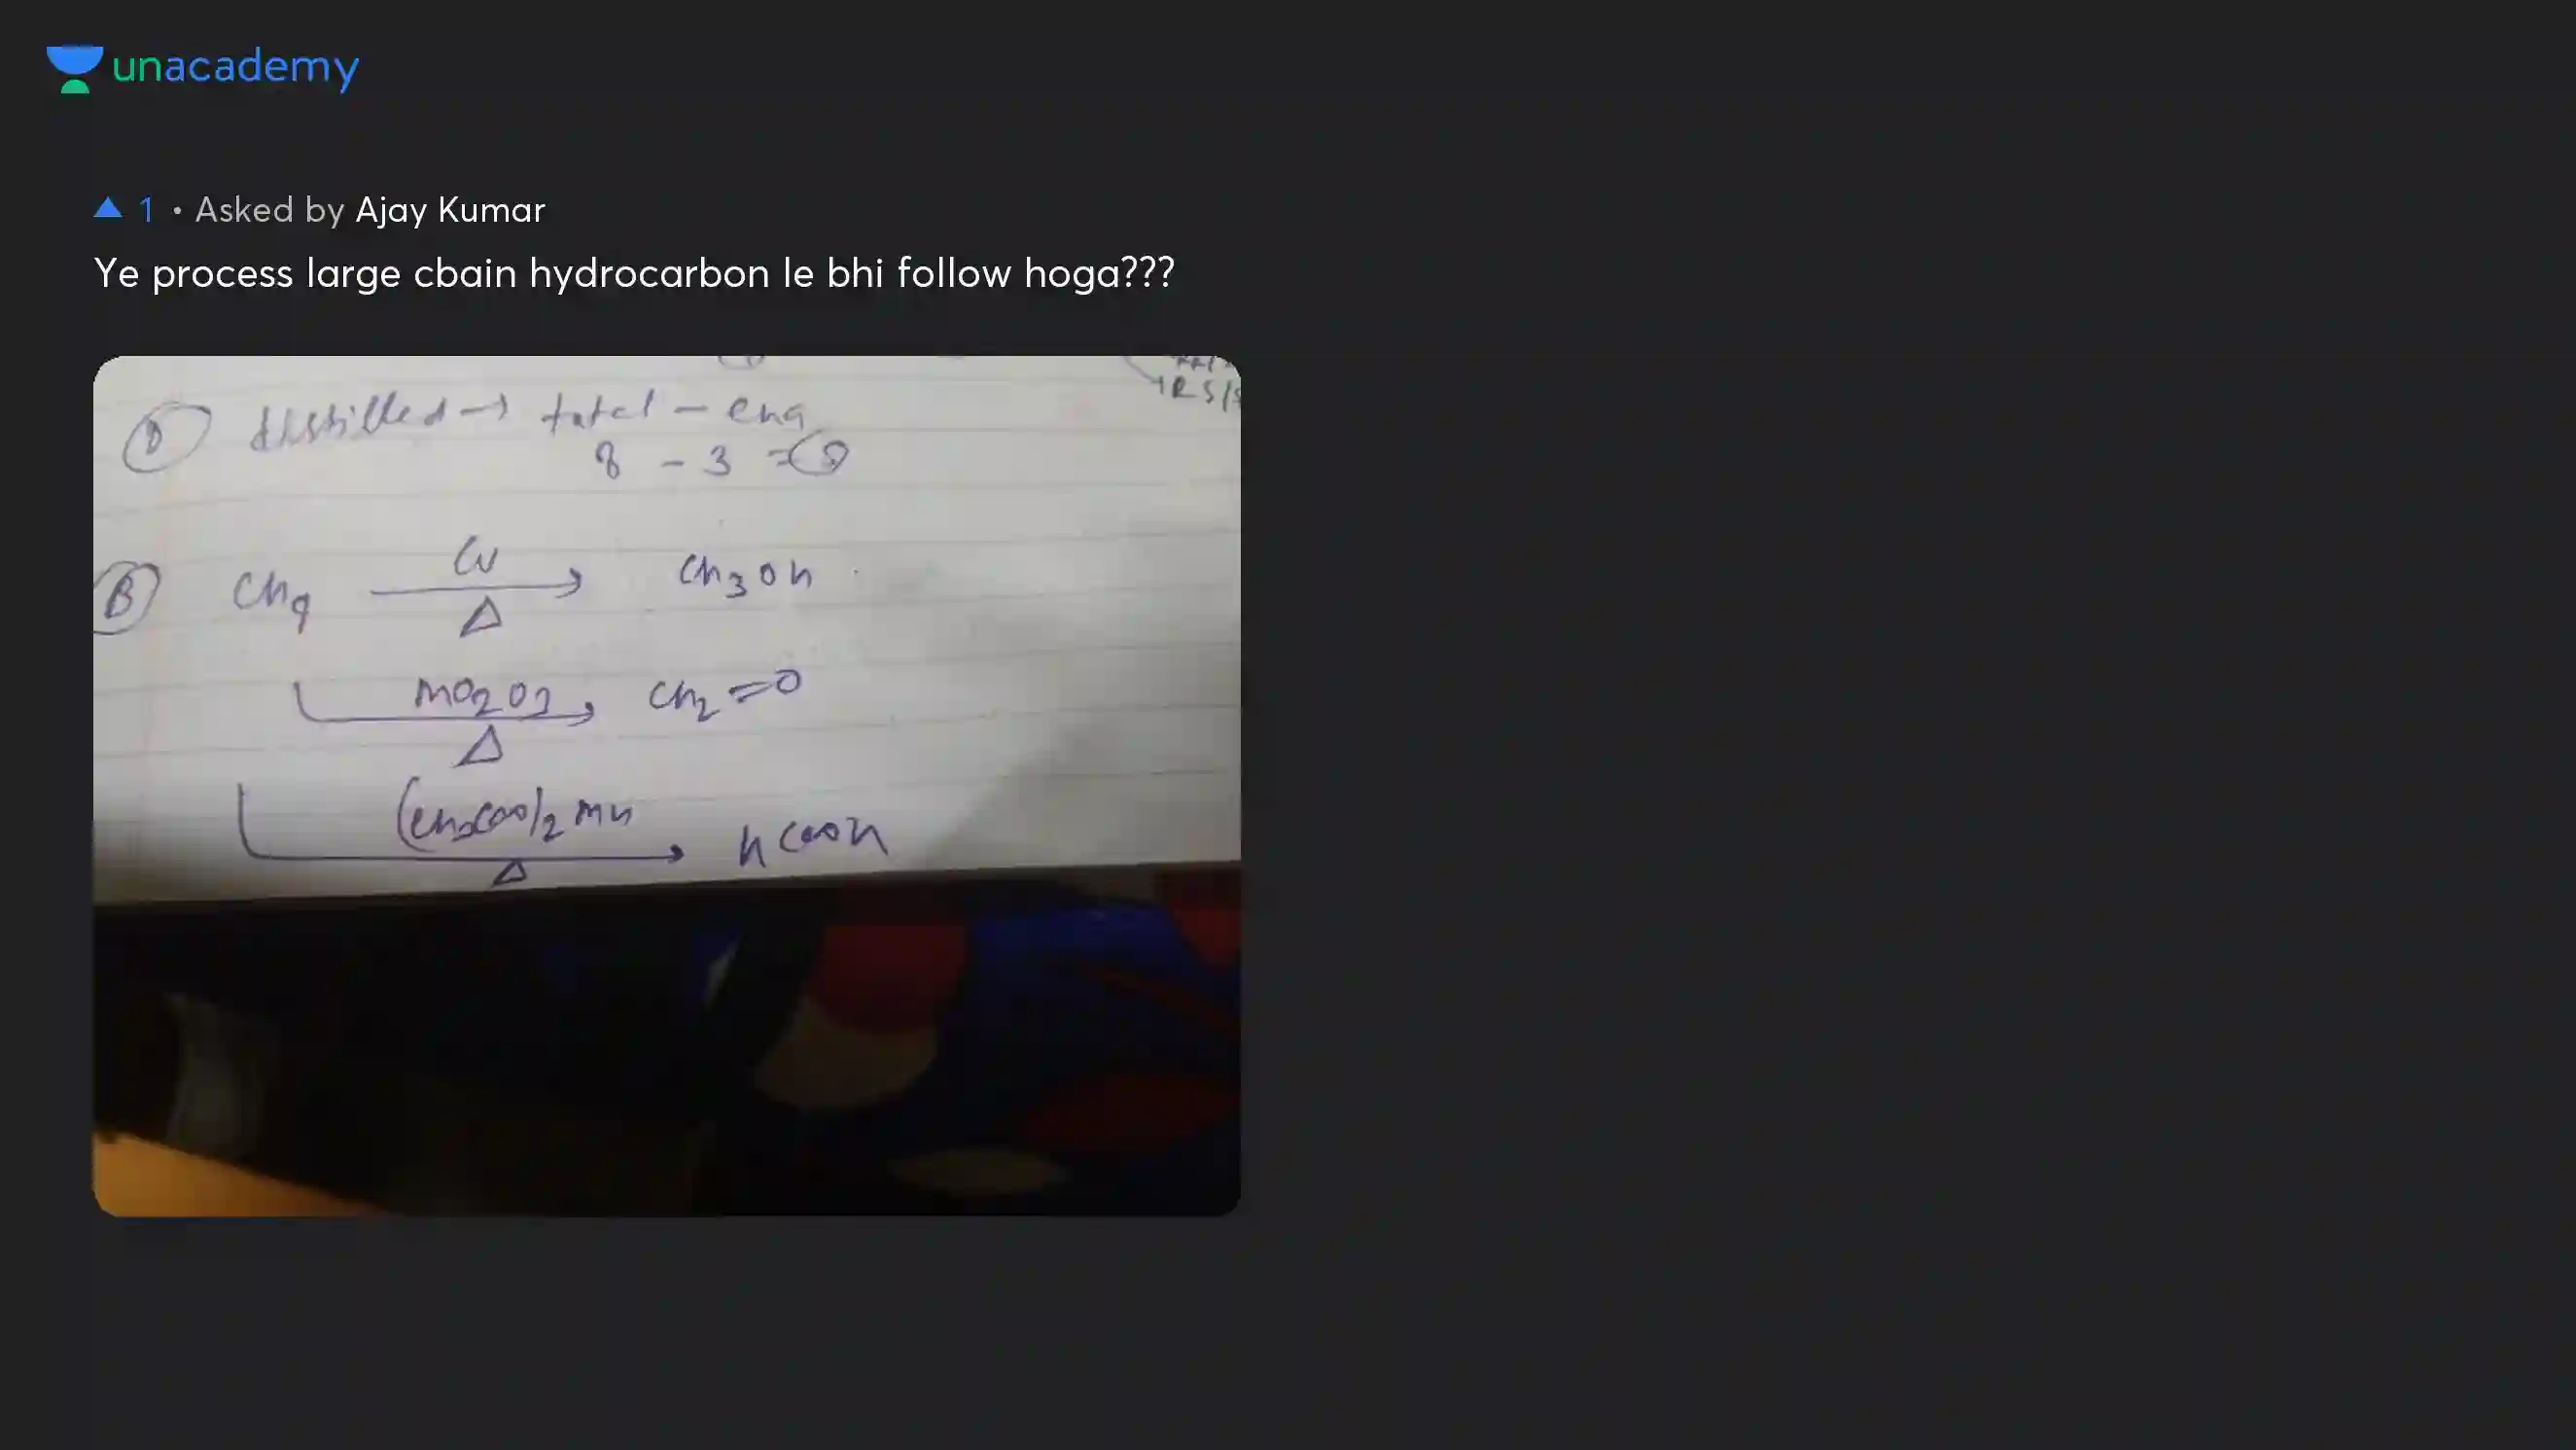 unacademy
▲ 1 • Asked by Ajay Kumar
Ye process large cbain hydrocarbon le bhi follow hoga???
RS/S
D distilled → total - ena
8 - 3 =
B CH4 Cu Δ → CH3OH
MO2O3 Δ → CH2=O
(CH3COO)2 Mn Δ → HCOOH